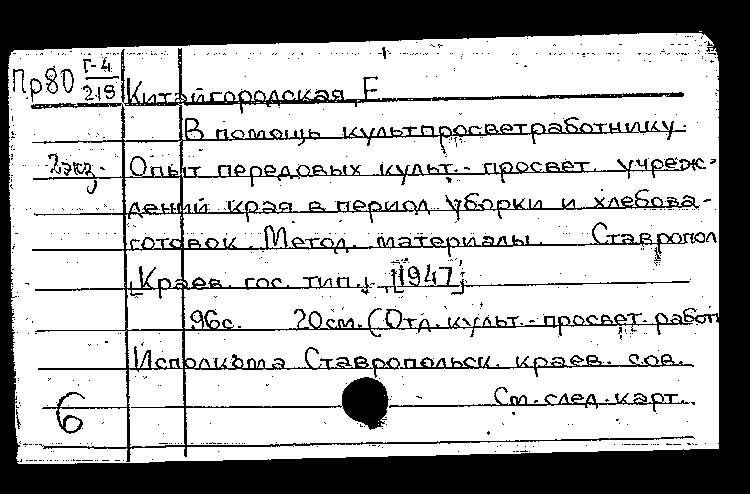 Пр80 Г-4
219
Китайгородская, Е
В помощь культпросветработнику
2экз.
Опыт передовых культ.- просвет. учреж-
дений края в период уборки и хлебоза-
готовок. Метод. материалы. Ставрополь
[Краев. гос. тип.], [1947].
96с. 20см. (Отд. культ.-просвет. работ
Исполкома Ставропольск. краев. сов.
6
См. след. карт.